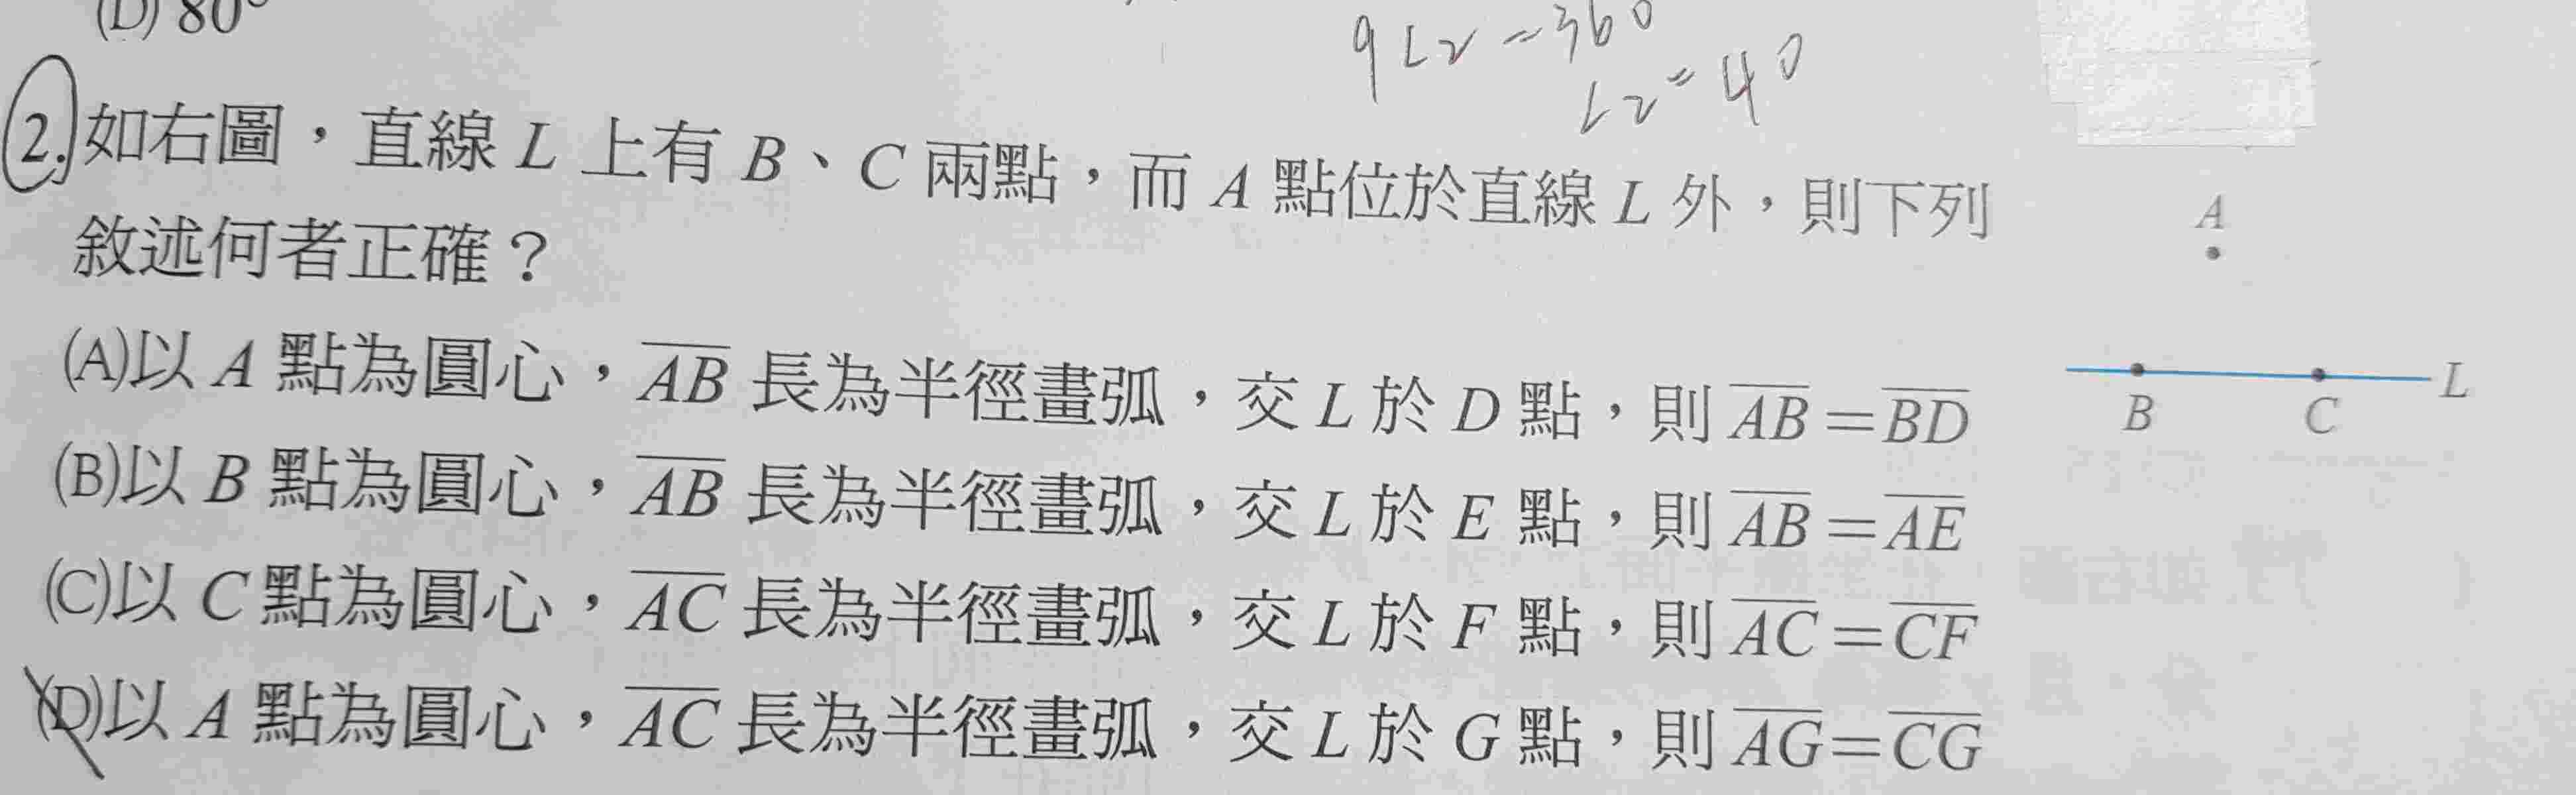 (D) 80°
9∠2=360
∠2=40
2.如右圖,直線 L 上有 B、C 兩點,而 A 點位於直線 L 外,則下列
敘述何者正確?
(A)以 A 點為圓心,AB 長為半徑畫弧,交 L 於 D 點,則 AB=BD
(B)以 B 點為圓心,AB 長為半徑畫弧,交 L 於 E 點,則 AB=AE
(C)以 C 點為圓心,AC 長為半徑畫弧,交 L 於 F 點,則 AC=CF
(D)以 A 點為圓心,AC 長為半徑畫弧,交 L 於 G 點,則 AG=CG
A
L
B C